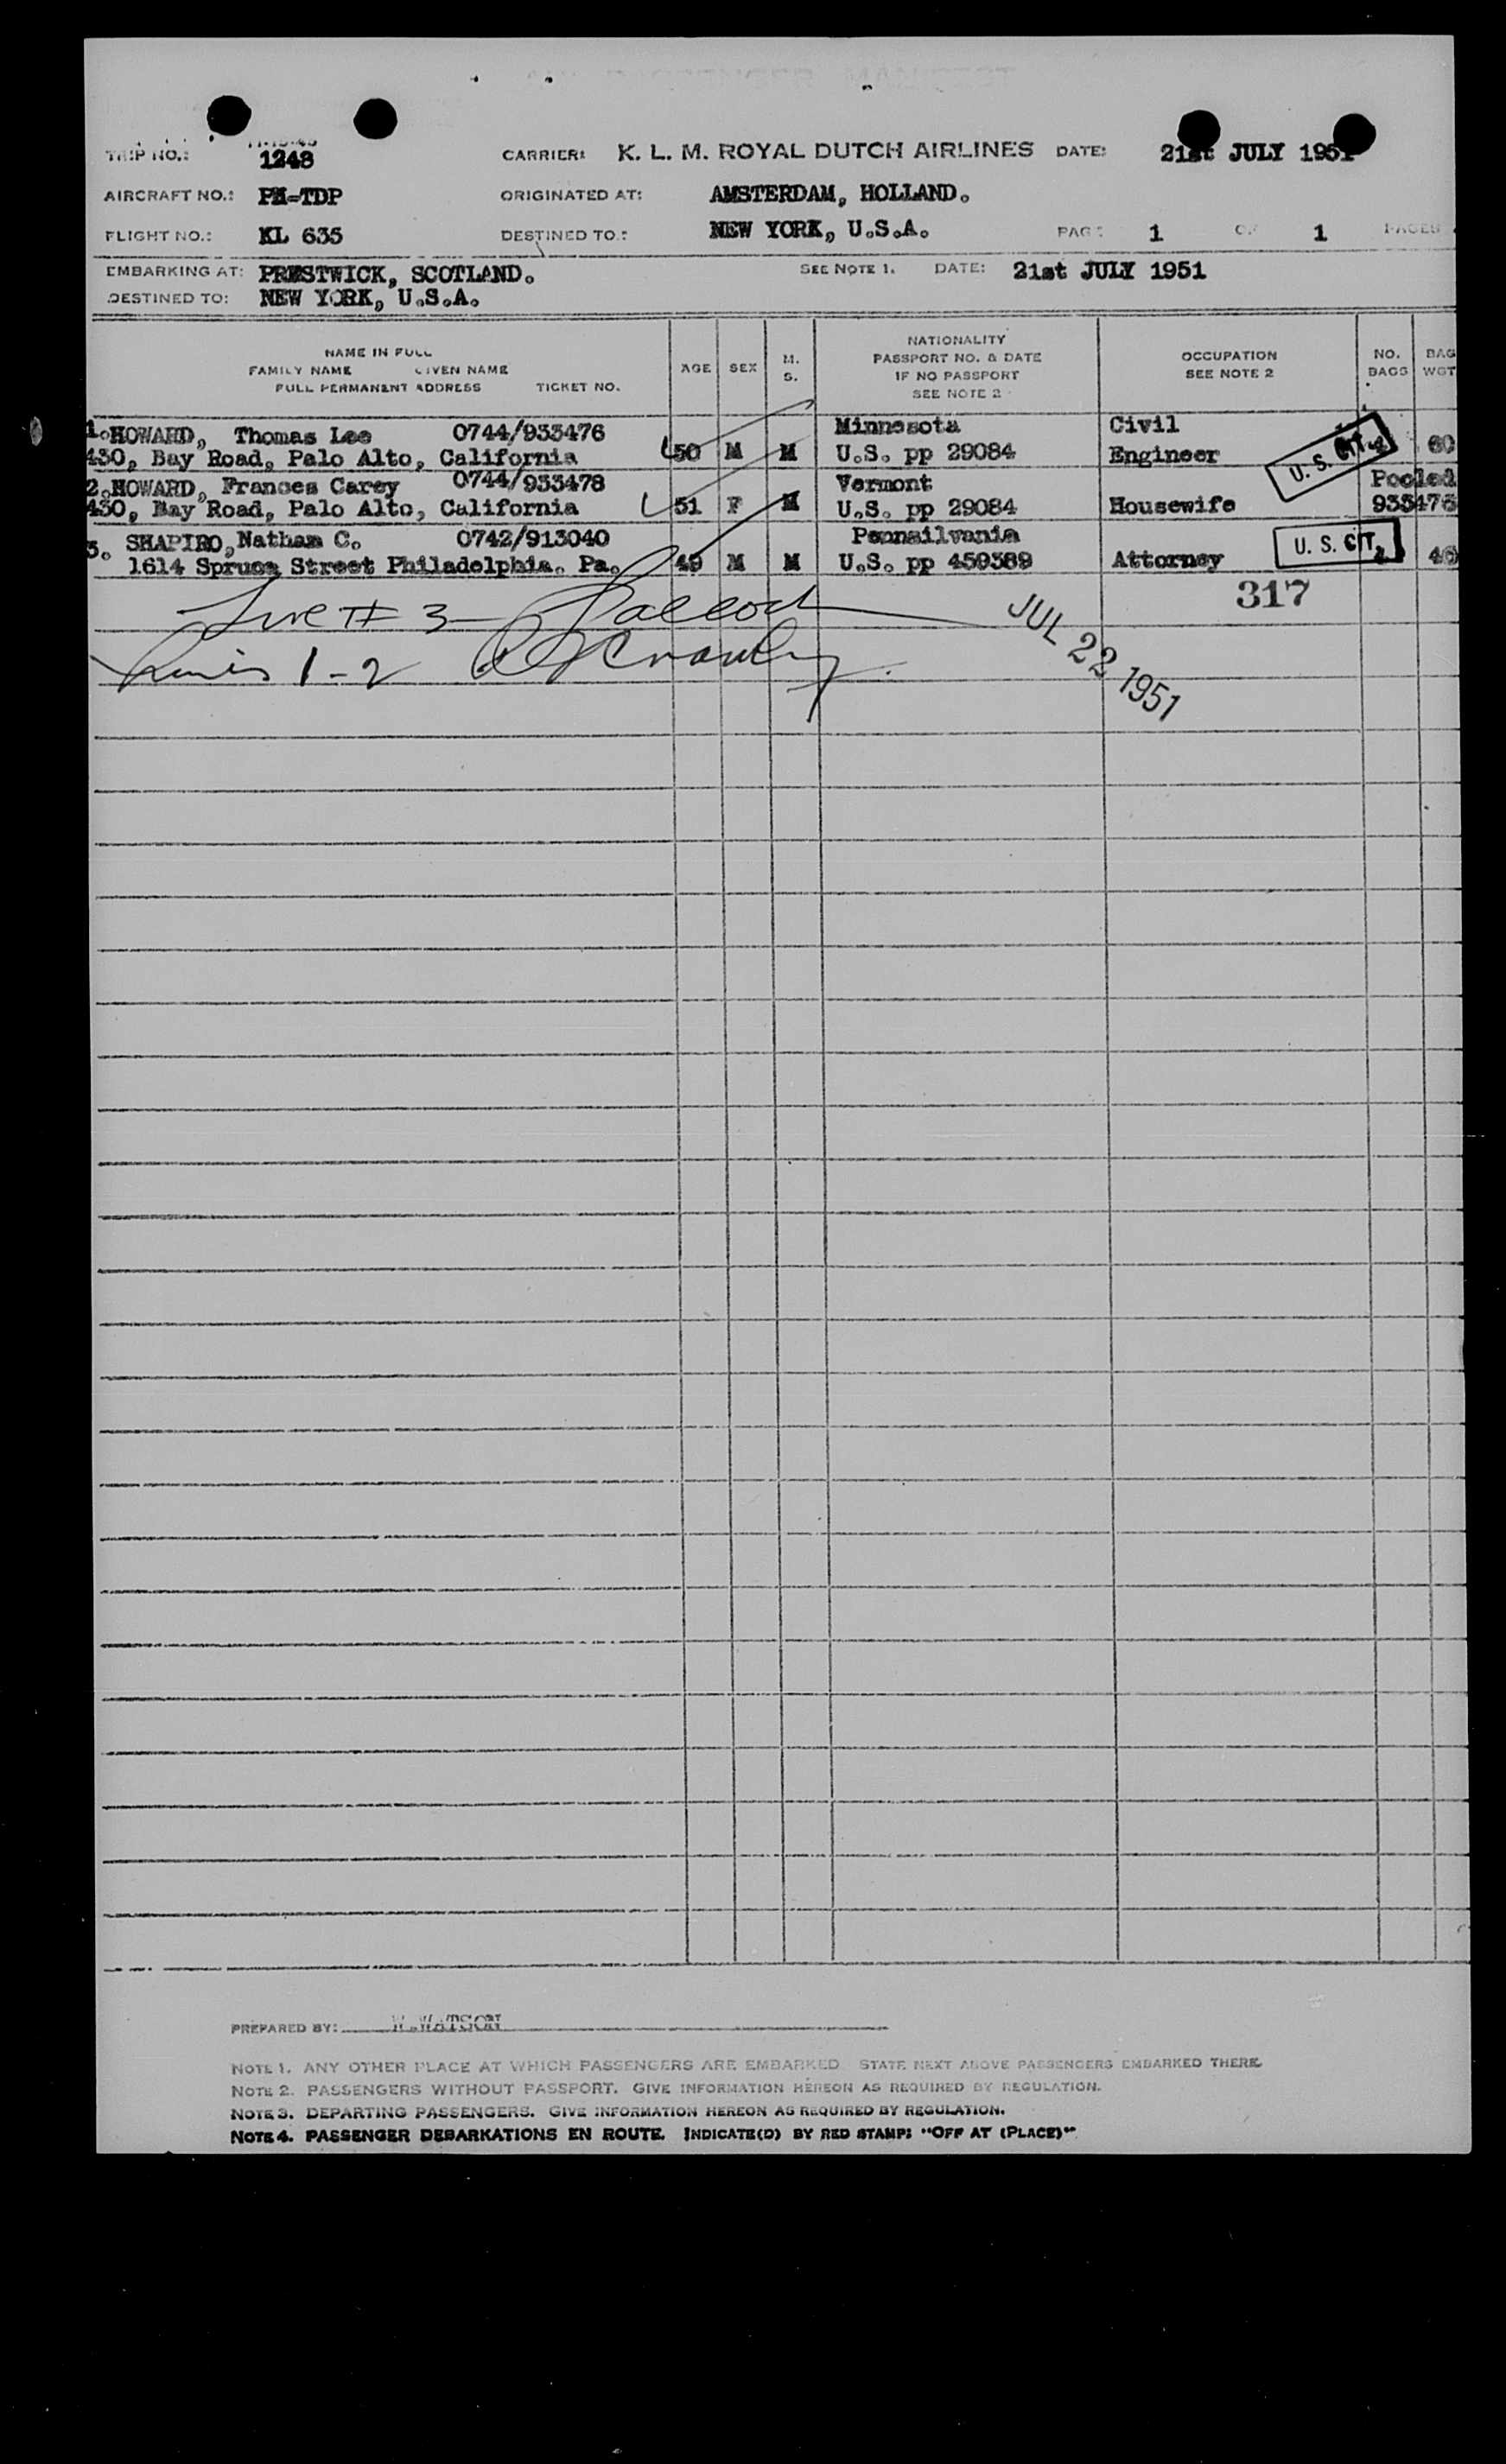 TRIP NO.: 1248 CARRIER: K. L. M. ROYAL DUTCH AIRLINES DATE: 21st JULY 1951
AIRCRAFT NO.: PH-TDP ORIGINATED AT: AMSTERDAM, HOLLAND.
FLIGHT NO.: KL 635 DESTINED TO: NEW YORK, U.S.A. PAGE 1 OF 1 PAGES
EMBARKING AT: PRESTWICK, SCOTLAND. SEE NOTE 1. DATE: 21st JULY 1951
DESTINED TO: NEW YORK, U.S.A.
NAME IN FULL
FAMILY NAME GIVEN NAME
FULL PERMANENT ADDRESS TICKET NO.
AGE SEX M. S.
NATIONALITY
PASSPORT NO. & DATE
IF NO PASSPORT
SEE NOTE 2
OCCUPATION
SEE NOTE 2
NO. BAGS
BAG WGT
1. HOWARD, Thomas Lee 0744/933476 Minnesota Civil
430, Bay Road, Palo Alto, California 50 M M U.S. pp 29084 Engineer U. S. CIT. 60
2. HOWARD, Frances Carey 0744/933478 Vermont Pooled
430, Bay Road, Palo Alto, California 51 F M U.S. pp 29084 Housewife 933476
3. SHAPIRO, Nathan C. 0742/913040 Pennsilvania
1614 Spruce Street Philadelphia. Pa. 49 M M U.S. pp 459389 Attorney U. S. CIT. 40
317
Line # 3
Lines 1-2
JUL 22 1951
PREPARED BY: W.WATSON
NOTE 1. ANY OTHER PLACE AT WHICH PASSENGERS ARE EMBARKED. STATE NEXT ABOVE PASSENGERS EMBARKED THERE.
NOTE 2. PASSENGERS WITHOUT PASSPORT. GIVE INFORMATION HEREON AS REQUIRED BY REGULATION.
NOTE 3. DEPARTING PASSENGERS. GIVE INFORMATION HEREON AS REQUIRED BY REGULATION.
NOTE 4. PASSENGER DEBARKATIONS EN ROUTE. INDICATE(D) BY RED STAMP: "OFF AT (PLACE)"